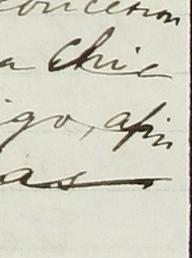 concesion
a Chie
igo, afin
as